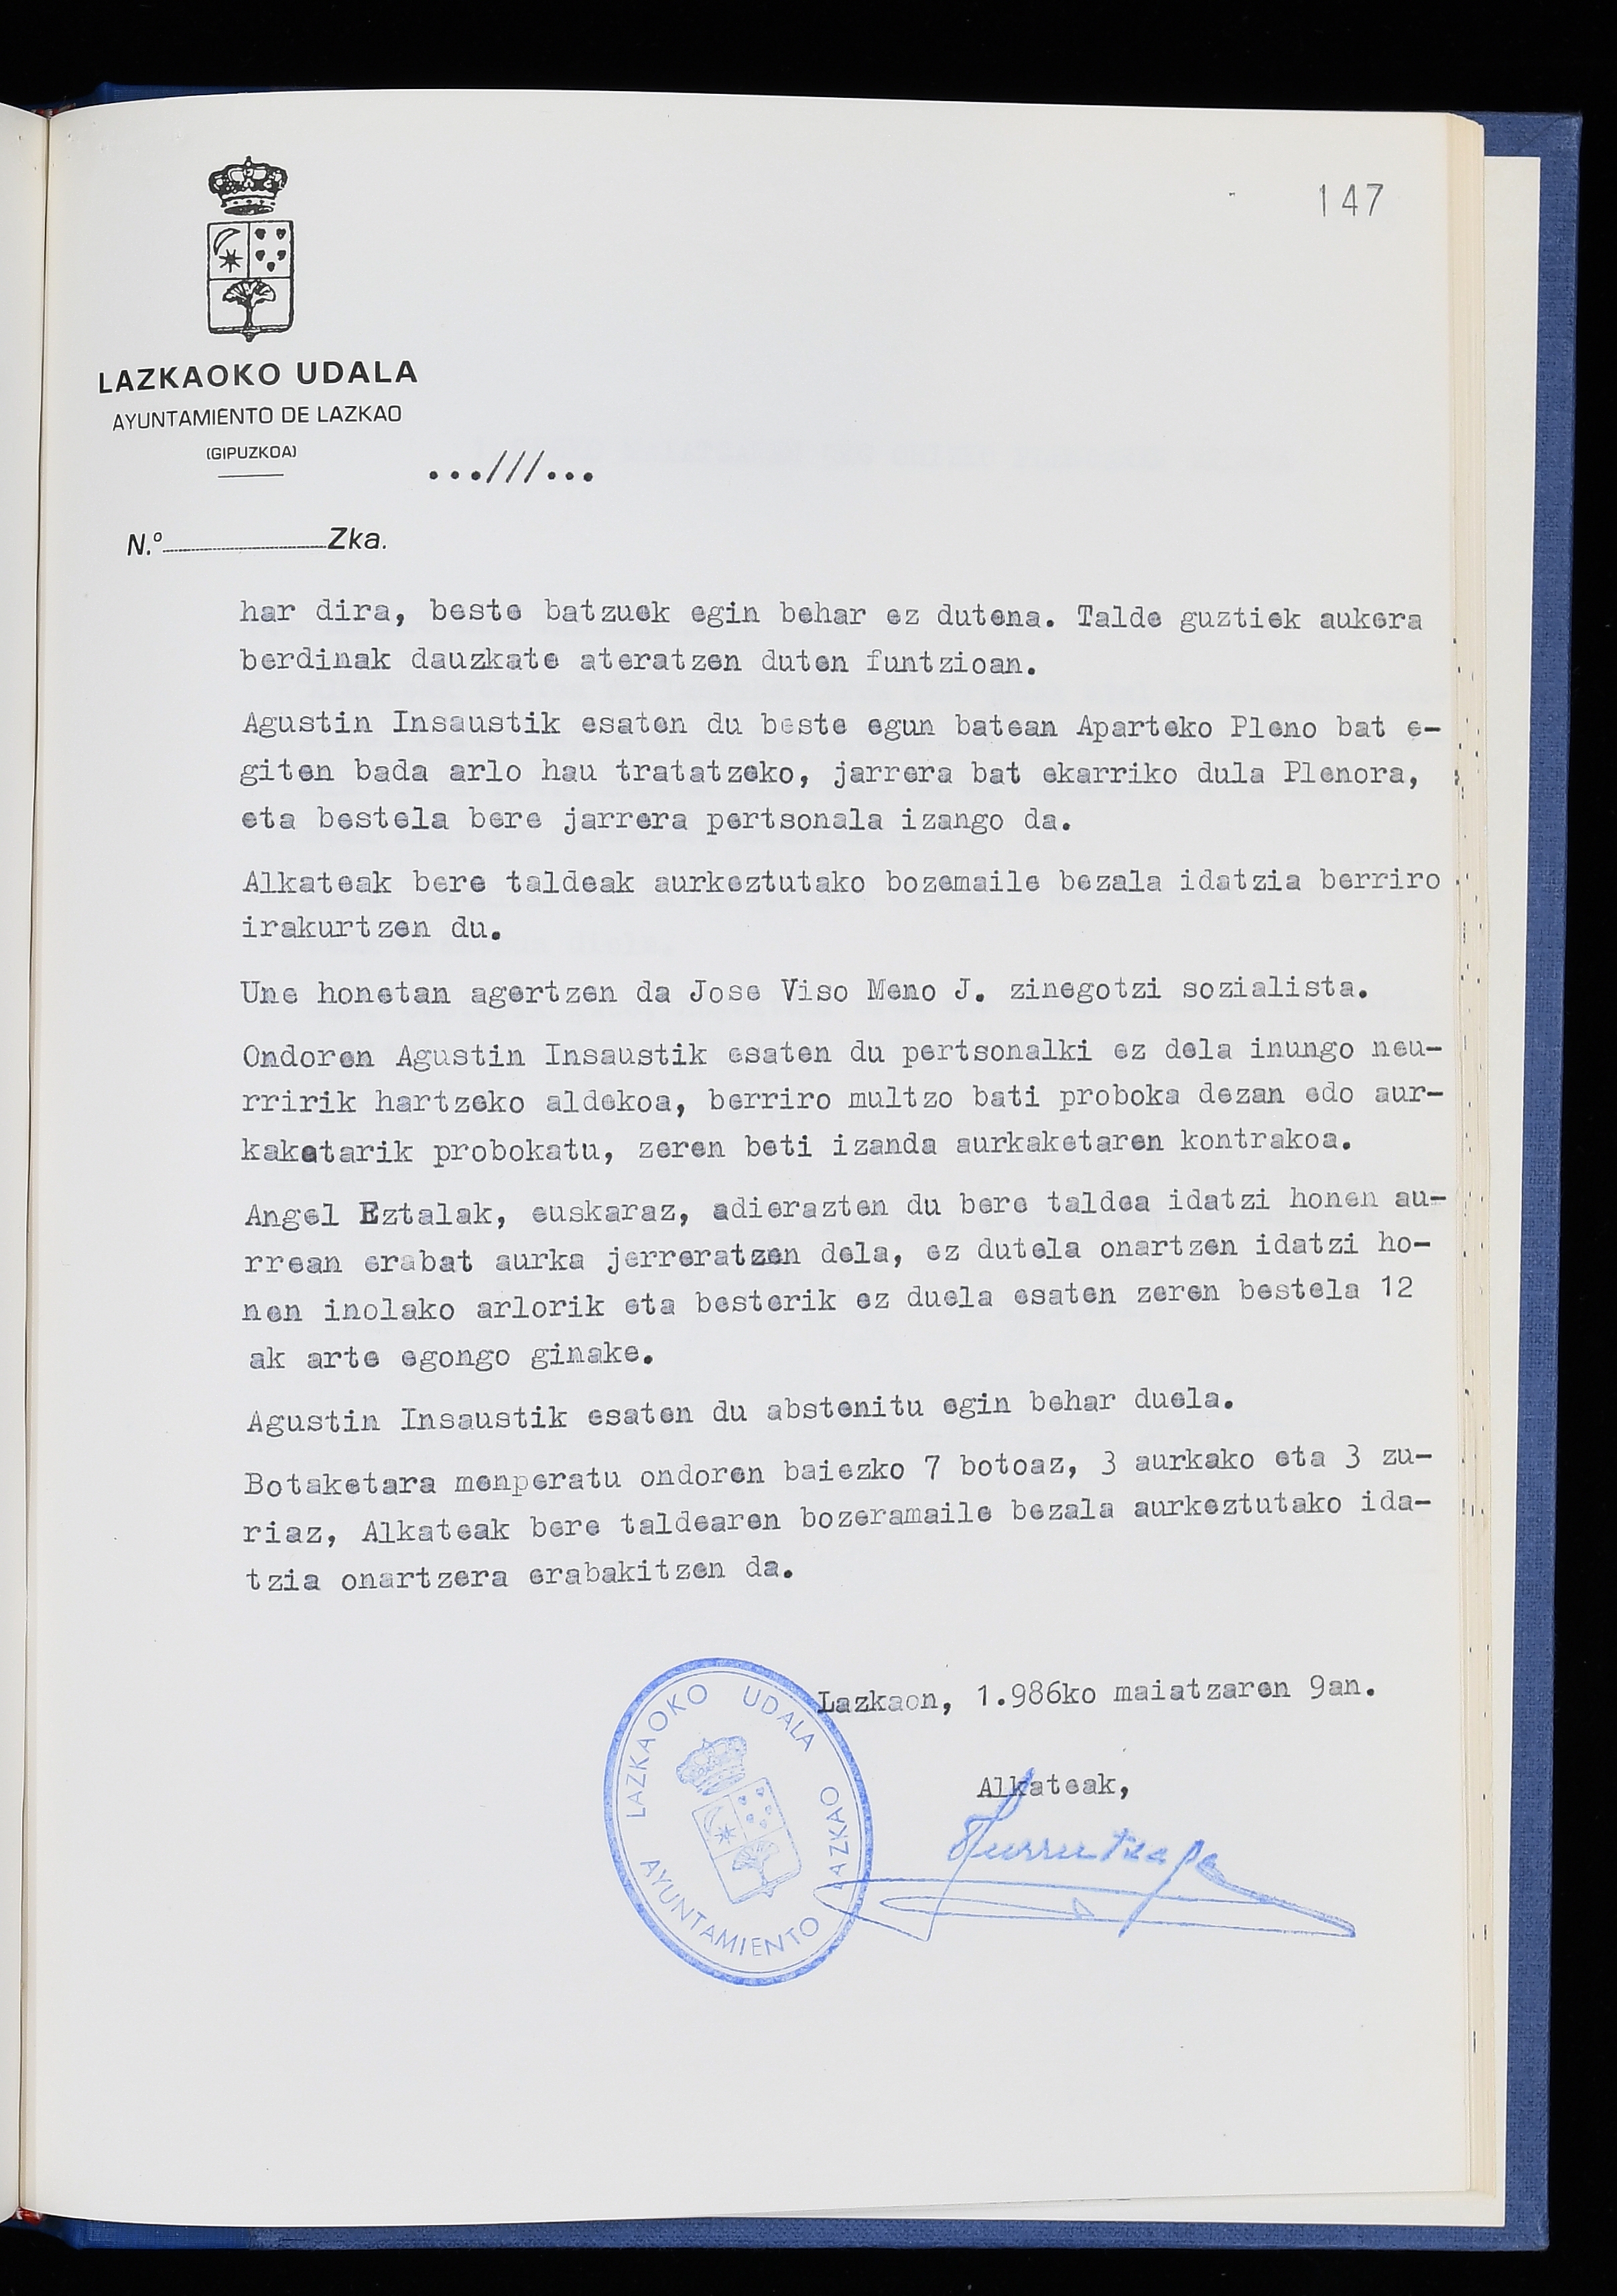 147
LAZKAOKO UDALA
AYUNTAMIENTO DE LAZKAO
(GIPUZKOA)
...///...
N.º Zka.
har dira, beste batzuek egin behar ez dutena. Talde guztiek aukera
berdinak dauzkate ateratzen duten funtzioan.
Agustin Insaustik esaten du beste egun batean Aparteko Pleno bat e-
giten bada arlo hau tratatzeko, jarrera bat ekarriko dula Plenora,
eta bestela bere jarrera pertsonala izango da.
Alkateak bere taldeak aurkeztutako bozemaile bezala idatzia berriro
irakurtzen du.
Une honetan agertzen da Jose Viso Meno J. zinegotzi sozialista.
Ondoren Agustin Insaustik esaten du pertsonalki ez dela inungo neu-
rririk hartzeko aldekoa, berriro multzo bati proboka dezan edo aur-
kaketarik probokatu, zeren beti izanda aurkaketaren kontrakoa.
Angel Eztalak, euskaraz, adierazten du bere taldea idatzi honen au-
rrean erabat aurka jerreratzen dela, ez dutela onartzen idatzi ho-
nen inolako arlorik eta besterik ez duela esaten zeren bestela 12
ak arte egongo ginake.
Agustin Insaustik esaten du abstenitu egin behar duela.
Botaketara menperatu ondoren baiezko 7 botoaz, 3 aurkako eta 3 zu-
riaz, Alkateak bere taldearen bozeramaile bezala aurkeztutako ida-
tzia onartzera erabakitzen da.
Lazkaon, 1.986ko maiatzaren 9an.
Alkateak,
LAZKAOKO UDALA
AYUNTAMIENTO LAZKAO